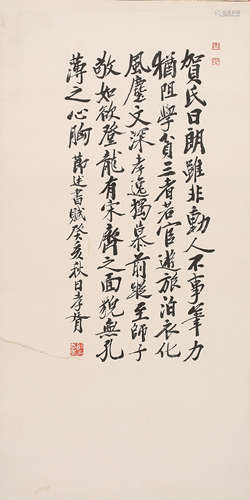 賀氏日朗雖非動人不事筆力
猶阻學貧三者名官遊旅泊衣化
風塵文深孝逸獨慕前蹤至師子
敬如欲登龍有宋齊之面貌無孔
薄之心胸 節述書賦癸亥秋日孝胥